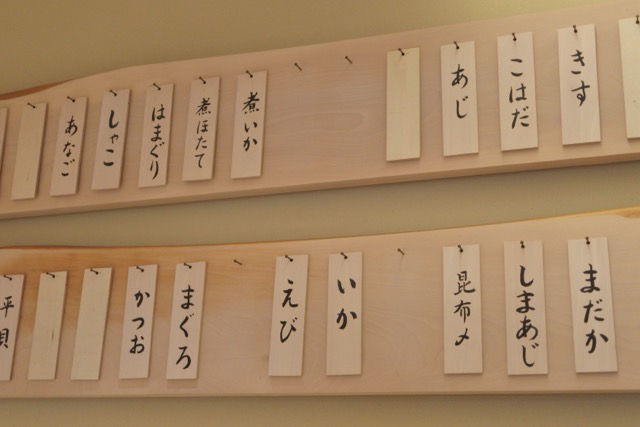 きす
こはだ
あじ
煮いか
煮ほたて
はまぐり
しゃこ
あなご
まだか
しまあじ
昆布〆
いか
えび
まぐろ
かつお
平貝